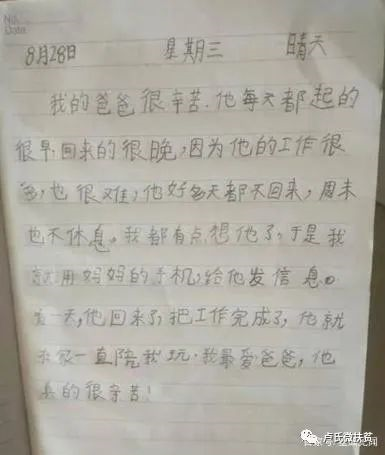 No.
Date
8月28日 星期三 晴天
我的爸爸很辛苦.他每天都起的
很早.回来的很晚,因为他的工作很
多,也很难,他好多天都不回来,周末
也不休息。我都有点想他了,于是我
就用妈妈的手机,给他发信息。
有一天,他回来了,把工作完成了,他就
一直陪我玩.我最爱爸爸,他
真的很辛苦!
卢氏微扶贫